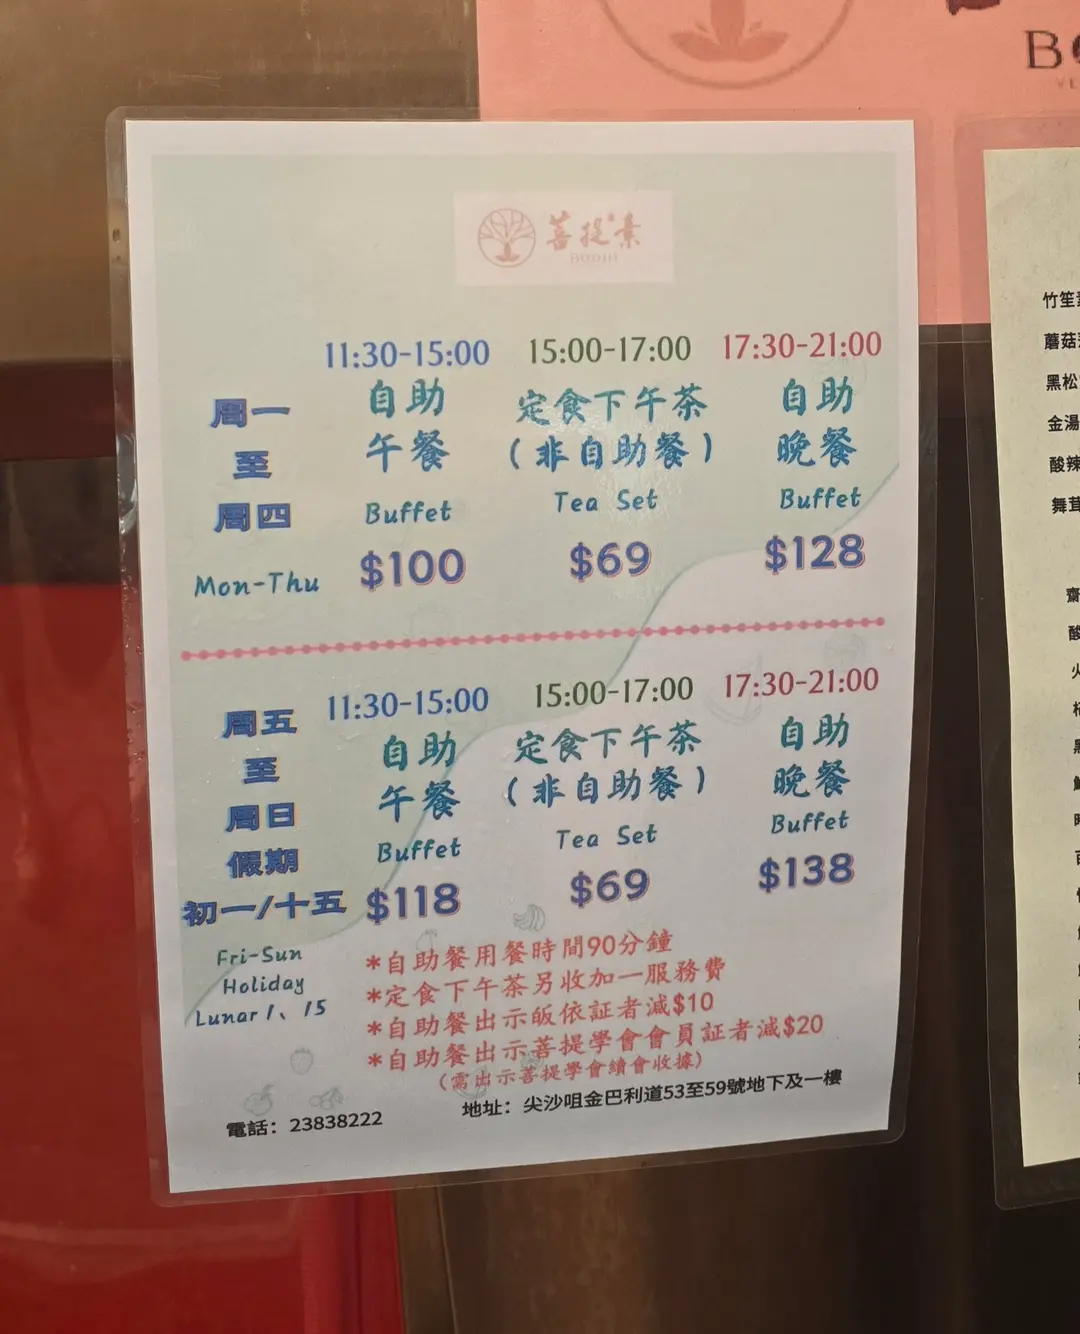 菩提素
BODHI
11:30-15:00 15:00-17:00 17:30-21:00
周一
至
周四
Mon-Thu
自助
午餐
Buffet
$100
定食下午茶
(非自助餐)
Tea Set
$69
自助
晚餐
Buffet
$128
11:30-15:00 15:00-17:00 17:30-21:00
周五
至
周日
假期
初一/十五
Fri-Sun
Holiday
Lunar 1、15
自助
午餐
Buffet
$118
定食下午茶
(非自助餐)
Tea Set
$69
自助
晚餐
Buffet
$138
*自助餐用餐時間90分鐘
*定食下午茶另收加一服務費
*自助餐出示皈依証者減$10
*自助餐出示菩提學會會員証者減$20
(需出示菩提學會續會收據)
電話：23838222
地址：尖沙咀金巴利道53至59號地下及一樓
竹笙
蘑菇
黑松
金湯
酸辣
舞茸
齋
酸
火